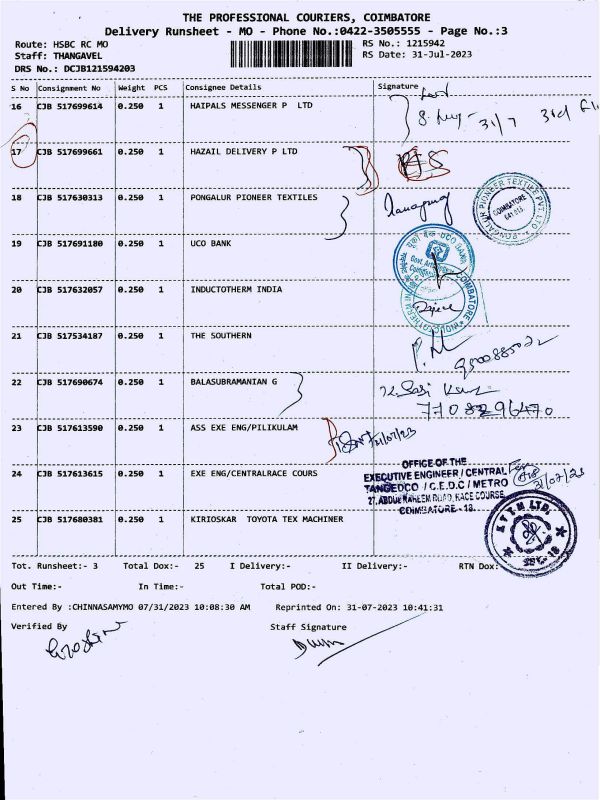 THE PROFESSIONAL COURIERS, COIMBATORE
Delivery Runsheet - MO - Phone No.:0422-3505555 - Page No.:3
Route: HSBC RC MO RS No.: 1215942
Staff: THANGAVEL RS Date: 31-Jul-2023
DRS No.: DCJB121594203
S No Consignment No Weight PCS Consignee Details Signature
16 CJB 517699614 0.250 1 HAIPALS MESSENGER P LTD
31/7 3rd
17 CJB 517699661 0.250 1 HAZAIL DELIVERY P LTD
18 CJB 517630313 0.250 1 PONGALUR PIONEER TEXTILES
PONGALUR PIONEER TEXTILE PVT. LTD.
COIMBATORE
641 015
19 CJB 517691180 0.250 1 UCO BANK
UCO BANK
20 CJB 517632057 0.250 1 INDUCTOTHERM INDIA
INDUCTOTHERM
COIMBATORE
21 CJB 517534187 0.250 1 THE SOUTHERN
22 CJB 517690674 0.250 1 BALASUBRAMANIAN G
23 CJB 517613590 0.250 1 ASS EXE ENG/PILIKULAM
31/07/23
24 CJB 517613615 0.250 1 EXE ENG/CENTRALRACE COURS
OFFICE OF THE
EXECUTIVE ENGINEER / CENTRAL
TANGEDCO / C.E.D.C / METRO
27, ABDUL RAHEEM ROAD, RACE COURSE,
COIMBATORE - 18.
31/07/23
25 CJB 517680381 0.250 1 KIRIOSKAR TOYOTA TEX MACHINER
KTTM LTD.
Tot. Runsheet:- 3 Total Dox:- 25 I Delivery:- II Delivery:- RTN Dox:-
Out Time:- In Time:- Total POD:-
Entered By :CHINNASAMYMO 07/31/2023 10:08:30 AM Reprinted On: 31-07-2023 10:41:31
Verified By Staff Signature